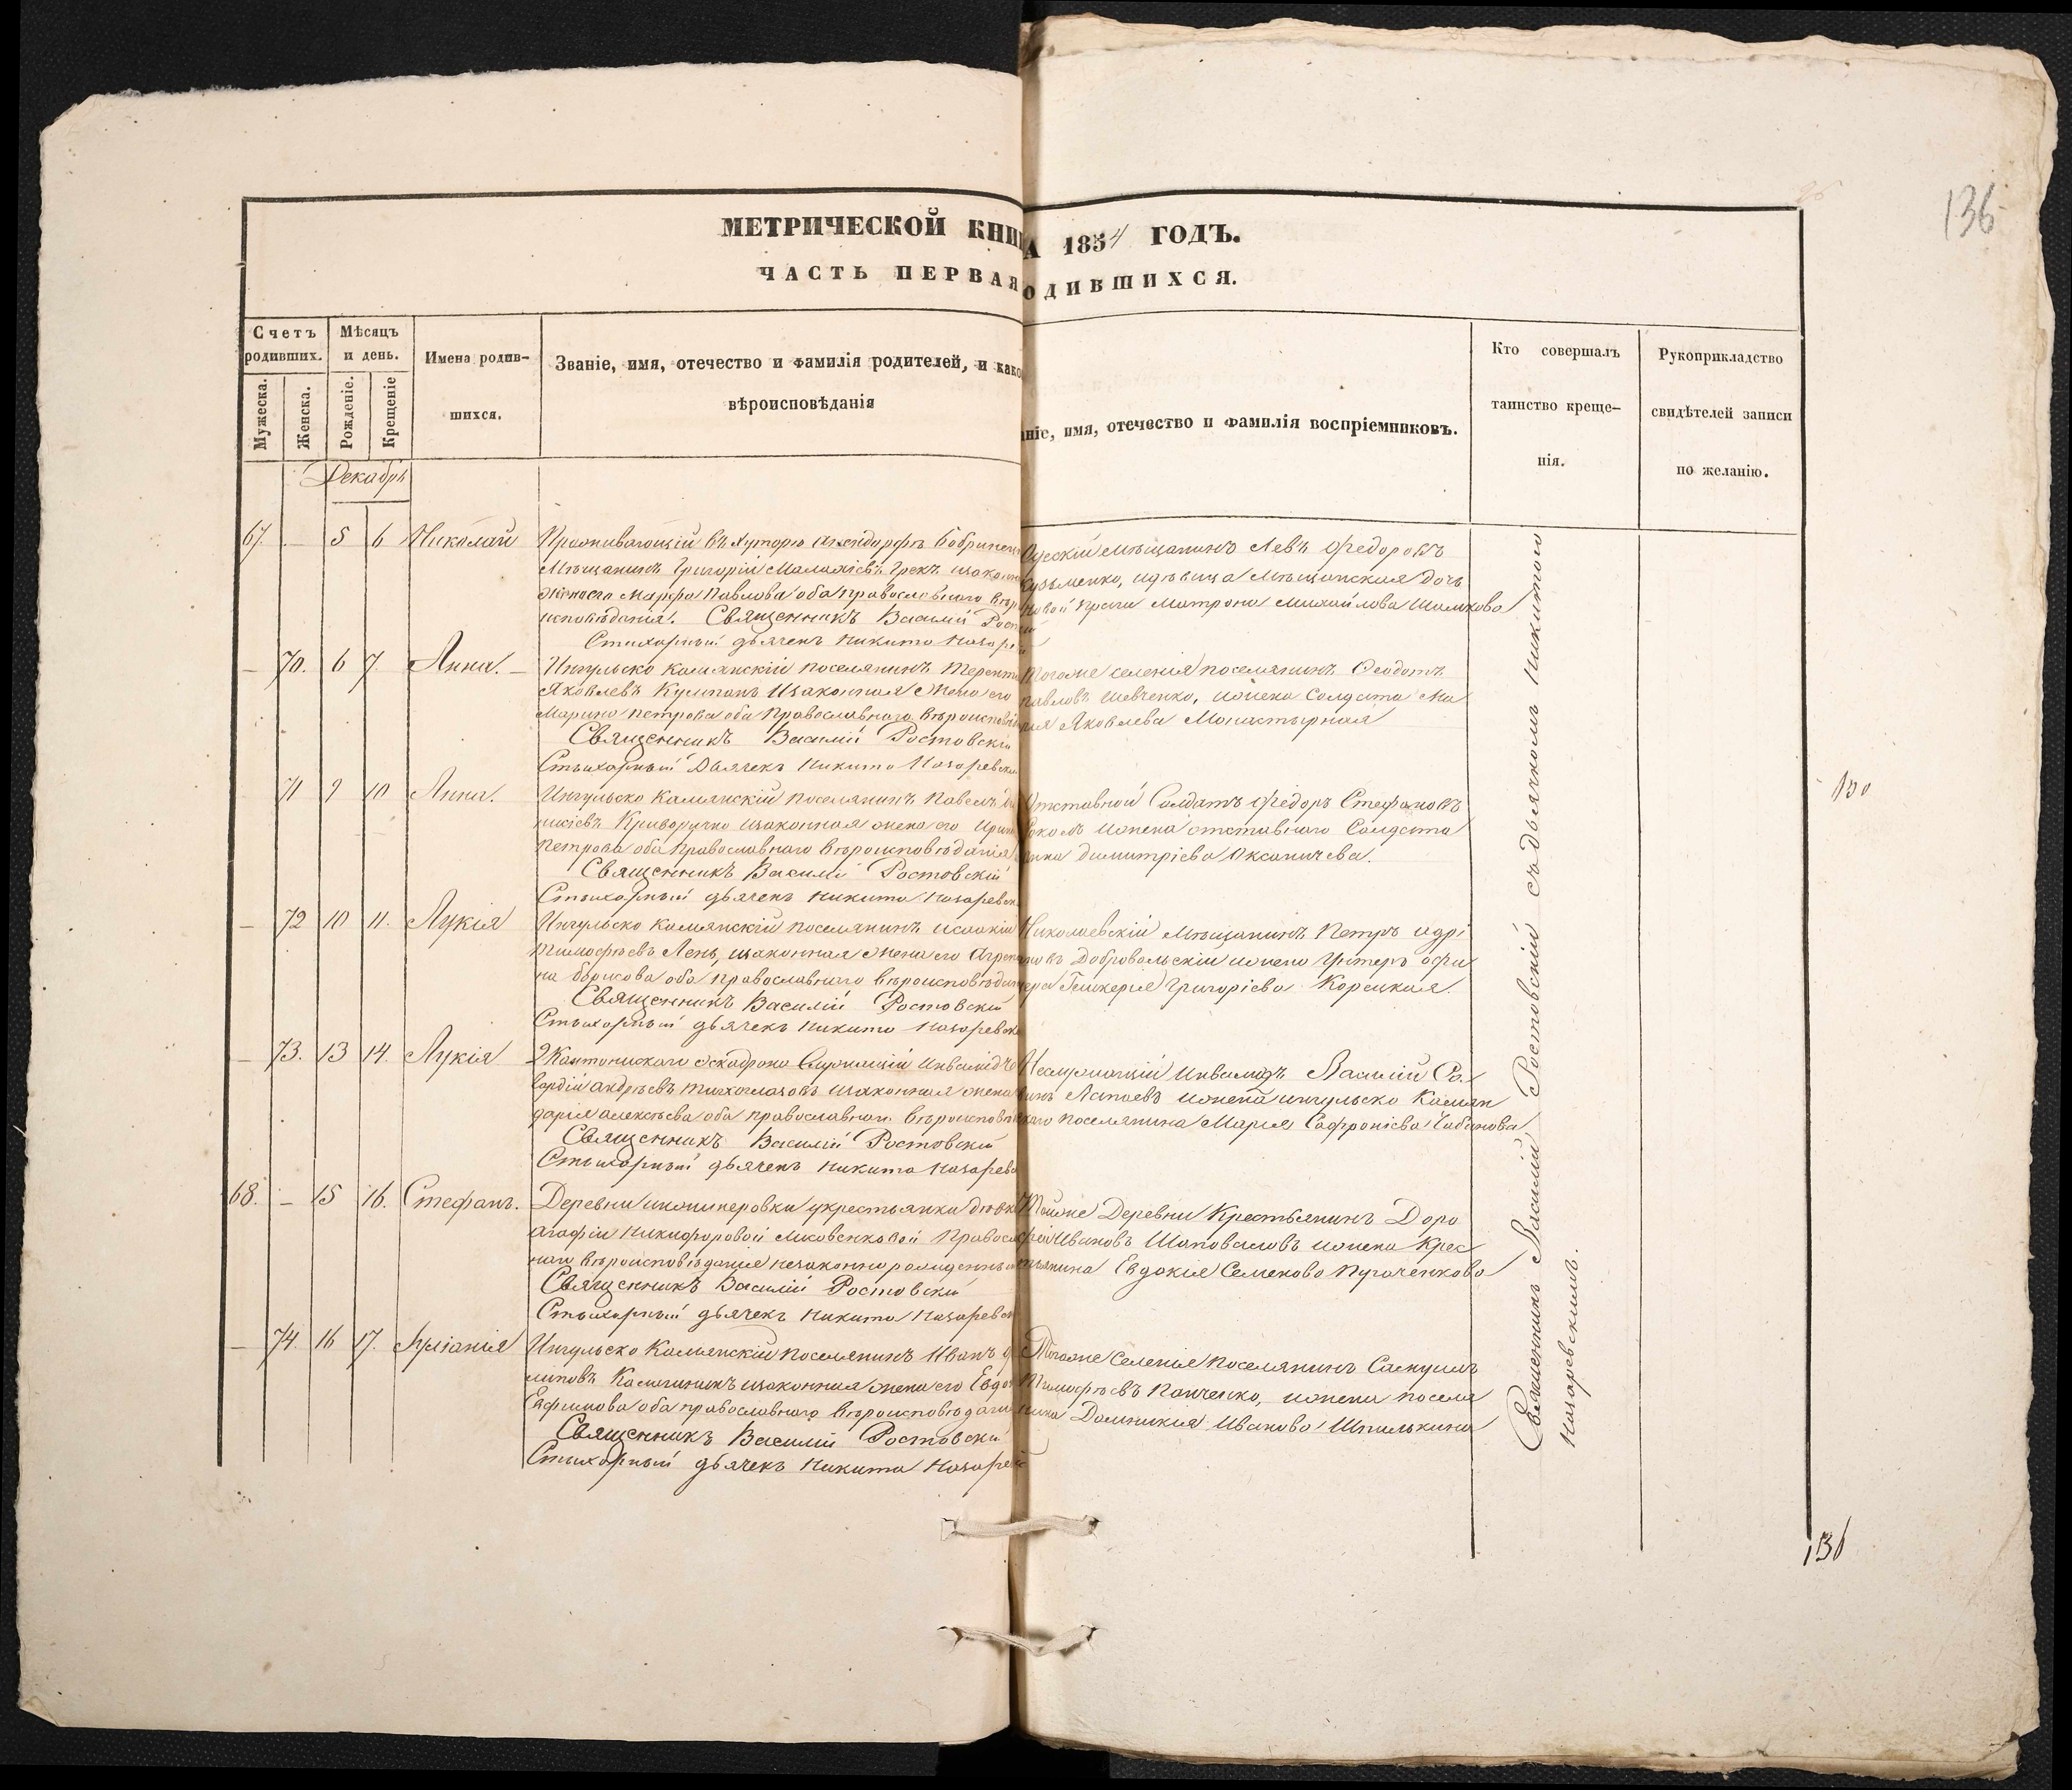 136
МЕТРИЧЕСКОЙ КНИ
А 1854 ГОДЪ.
ЧАСТЬ ПЕРВАЯ
ОДИВШИХСЯ.
Счетъ родивших.
Мужеска.
Женска.
Мѣсяцъ и день.
Рожденіе.
Крещеніе
Имена родив-
шихся.
Званіе, имя, отечество и фамилія родителей, и како
вѣроисповѣданія
ніе, имя, отечество и фамилія воспріемниковъ.
Кто совершалъ
таинство креще-
нія.
Рукоприкладство
свидѣтелей записи
по желанію.
Декабрь
67. — 5 6 Николай
Проживающій въ Хуторѣ Бобринец
Мѣщанинъ Григорій Грекъ изакон
жена его Марфа Павлова оба православнаго вѣро
исповѣданія. Священникъ Василій Рост
Стихарный дьячекъ Никита Назаре
мѣщанинъ Левъ Федоровъ
Кузьменко, идѣвица Мѣщанская дочь
Матрона Михайлова
— 70. 6 7. Анна. —
Ингульско Камянскій поселянинъ Терентій
Яковлевъ изаконная жена его
Марина Петрова оба Православнаго вѣроисповѣд
Священникъ Василій Ростовскій
Стихарный Дьячекъ Никита Назаревски
Тогоже селенія поселянинъ Ѳеодотъ
Павловъ Шевченко, ижена Солдата Ма
рія Яковлева Монастырная
71 9 10 Анна.
Ингульско Камянскій поселянинъ Павелъ
Криворучко изаконная жена его Ирина
Петрова оба Православнаго вѣроисповѣданія
Священникъ Василій Ростовскій
Стихарный дьячекъ Никита Назаревск
Отставной Солдатъ Федоръ Стефановъ
ижена отставнаго Солдата
Анна Димитріева
— 72 10 11. Лукія
Ингульско Камянскій поселянинъ Исаакій
Тимофѣевъ Лень, изаконная жена его Агрепи
на Борисова оба православнаго вѣроисповѣдан
Священникъ Василій Ростовскій
Стихарный дьячекъ Никита Назаревск
Николаевскій Мѣщанинъ Петръ Адрі
ановъ Добровольскій ижена Унтеръ офи
цера Гликерія Григоріева Корецкая.
— 73. 13 14. Лукія
2 Кантонискаго Эскадрона Служащій инвалидъ
Андреевъ изаконная жена
Дарія Алексѣева оба православнаго вѣроисповѣ
Священникъ Василій Ростовскій
Стихарный дьячекъ Никита Назарев
Неслужащій Инвалидъ Василій
ижена Ингульско Камян
скаго поселянина Марія Сафроніева Чабанова
68. — 15 16. Стефанъ.
Деревни крестьянки дѣвки
Агафіи Никифоровой Православ
наго вѣроисповѣданія незаконно рожденный
Священникъ Василій Ростовскій
Стихарный дьячекъ Никита Назаревск
Тойже Деревни Крестьянинъ Доро
фей Ивановъ Шаповаловъ ижена Крес
тьянина Евдокія Семенова Пугаченкова
— 74. 16 17. Іуліанія
Ингульско Камянскій поселянинъ Иванъ Фи
липовъ Калашникъ изаконная жена его Евдок
Ефимова оба православнаго вѣроисповѣдан
Священникъ Василій Ростовски
Стихарный дьячекъ Никита Назаре
Тогоже Селенія поселянинъ Самуилъ
Тимофѣевъ Панченко, ижена поселя
нина Домникія Иванова Шпилькина
Священникъ Василій Ростовскій съ дьячкомъ Никитою
Назаревскимъ.
130
136